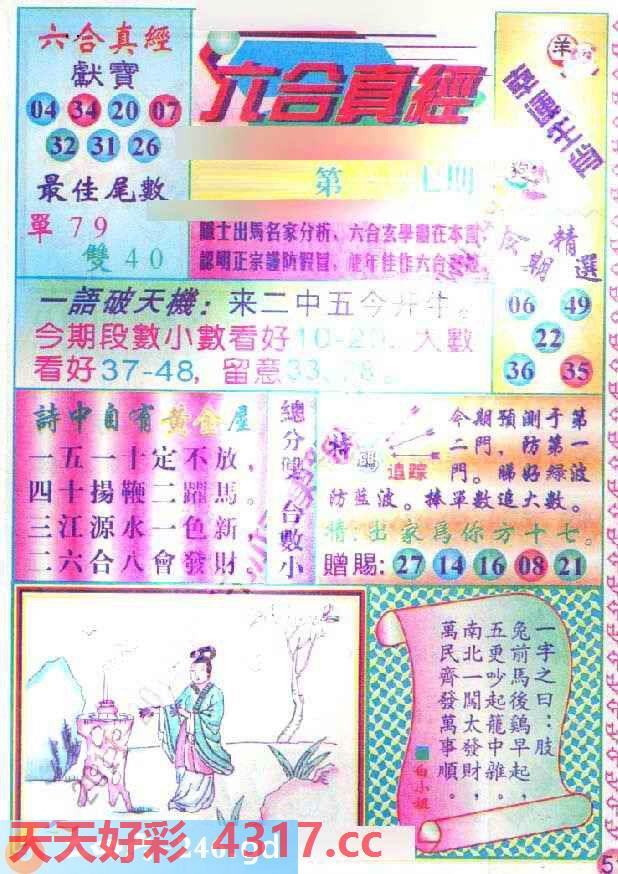 六合真經
獻寶
04 34 20 07
32 31 26
最佳尾數
單 79
雙 40
六合真經
第
期
羊
狗
出馬名家分析、六合玄學盡在本
認明正宗謹防假冒，
期
精選
06 49
22
36 35
一語破天機：来二中五今开牛。
今期段數小數看好10-20、大數
看好37-48，留意33、
詩中自有黃金屋
一五一十定不放，
四十揚鞭二躍馬。
三江源水一色新，
二六合八會發財。
總分
合數小
特碼
追踪
今期預測于第
二門，防第一
門。睇好綠波
防蓝波。捧單數追大數。
猜：出家爲你方十七。
贈賜：27 14 16 08 21
一字之曰：肢
兔前馬後鷄早起，
五更吵起龍中雜。
南北一闖太發財，
萬民齊發萬事順。
白小姐
天天好彩 4317.cc
246.gd
5